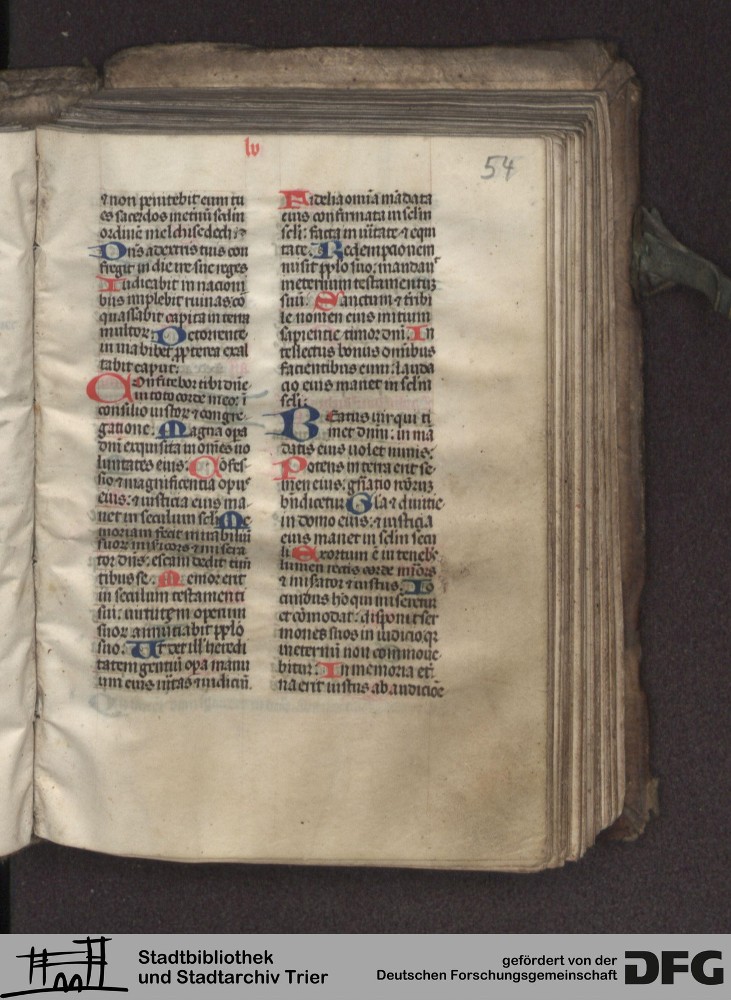 lv
54
⁊ non penitebit eum tu
es sacerdos inetnū scdm
ordinē melchisedech :
Dn̄s a dextris tuis con
fregit in die ire sue reges
Iudicabit in nacioni
bus implebit ruinas: cō
quassabit capita in terra
multoꝝ. De torrente
in uia bibet: ꝓpterea exal
tabit caput.
Confitebor tibi dn̄e
in toto corde meo: ī
consilio iustoꝝ ⁊ congre
gatione. Magna opa
dn̄i exquisita in om̄es uo
luntates eius. Cōfes
sio ⁊ magnificentia opus
eius: ⁊ iusticia eius ma
net in seculum scli Me
moriam fecit mirabiliū
suoꝝ mis̄icors ⁊ misera
tor dn̄s: escam dedit tim̄
tibus se. Memor erit
in seculum testamenti
sui: uirtutem operum
suoꝝ annūciabit pplō
suo. Ut det ill' heredi
tatem gentiū opa manu
um eius ūitas ⁊ iudiciū.
Fidelia omīa mādata
eius confirmata in sclm
scli: facta in ūitate ⁊ equi
tate. Redempcionem
misit pplo suo: mandauit
ineternum testamentum
suū. Sanctum ⁊ tr̄ibi
le nomen eius inicium
sapientie timor dn̄i. In
tellectus bonus om̄ibus
facientibus eum: lauda
cio eius manet in sclm
scli.
Beatus uir qui ti
met dnm: in mā
datis eius uolet nimis.
Potens in terra erit se
men eius: gn̄atio rectoꝝ
bn̄dicetur Gla ⁊ diuitie
in domo eius: ⁊ iusticia
eius manet in sclm secu
li Exortum ē in tenebr̄
lumen rectis corde mis̄ors
⁊ mis̄ator ⁊ iustus. Io
cundus hō qui miseretur
et cōmodat: disponit ser
mones suos in iudicio: qꝛ
ineternū non commoue
bitur. In memoria et̄
na erit iustus ab audicioē
Stadtbibliothek
und Stadtarchiv Trier
gefördert von der
Deutschen Forschungsgemeinschaft
DFG